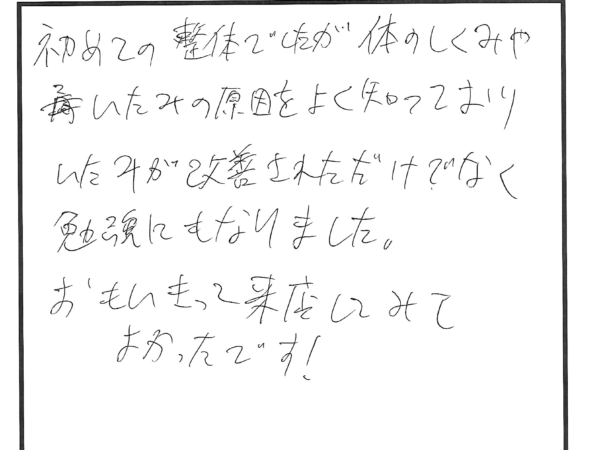 初めての整体でしたが体のしくみや
いたみの原因をよく知っており
いたみが改善されただけでなく
勉強にもなりました。
おもいきって来店してみて
よかったです!